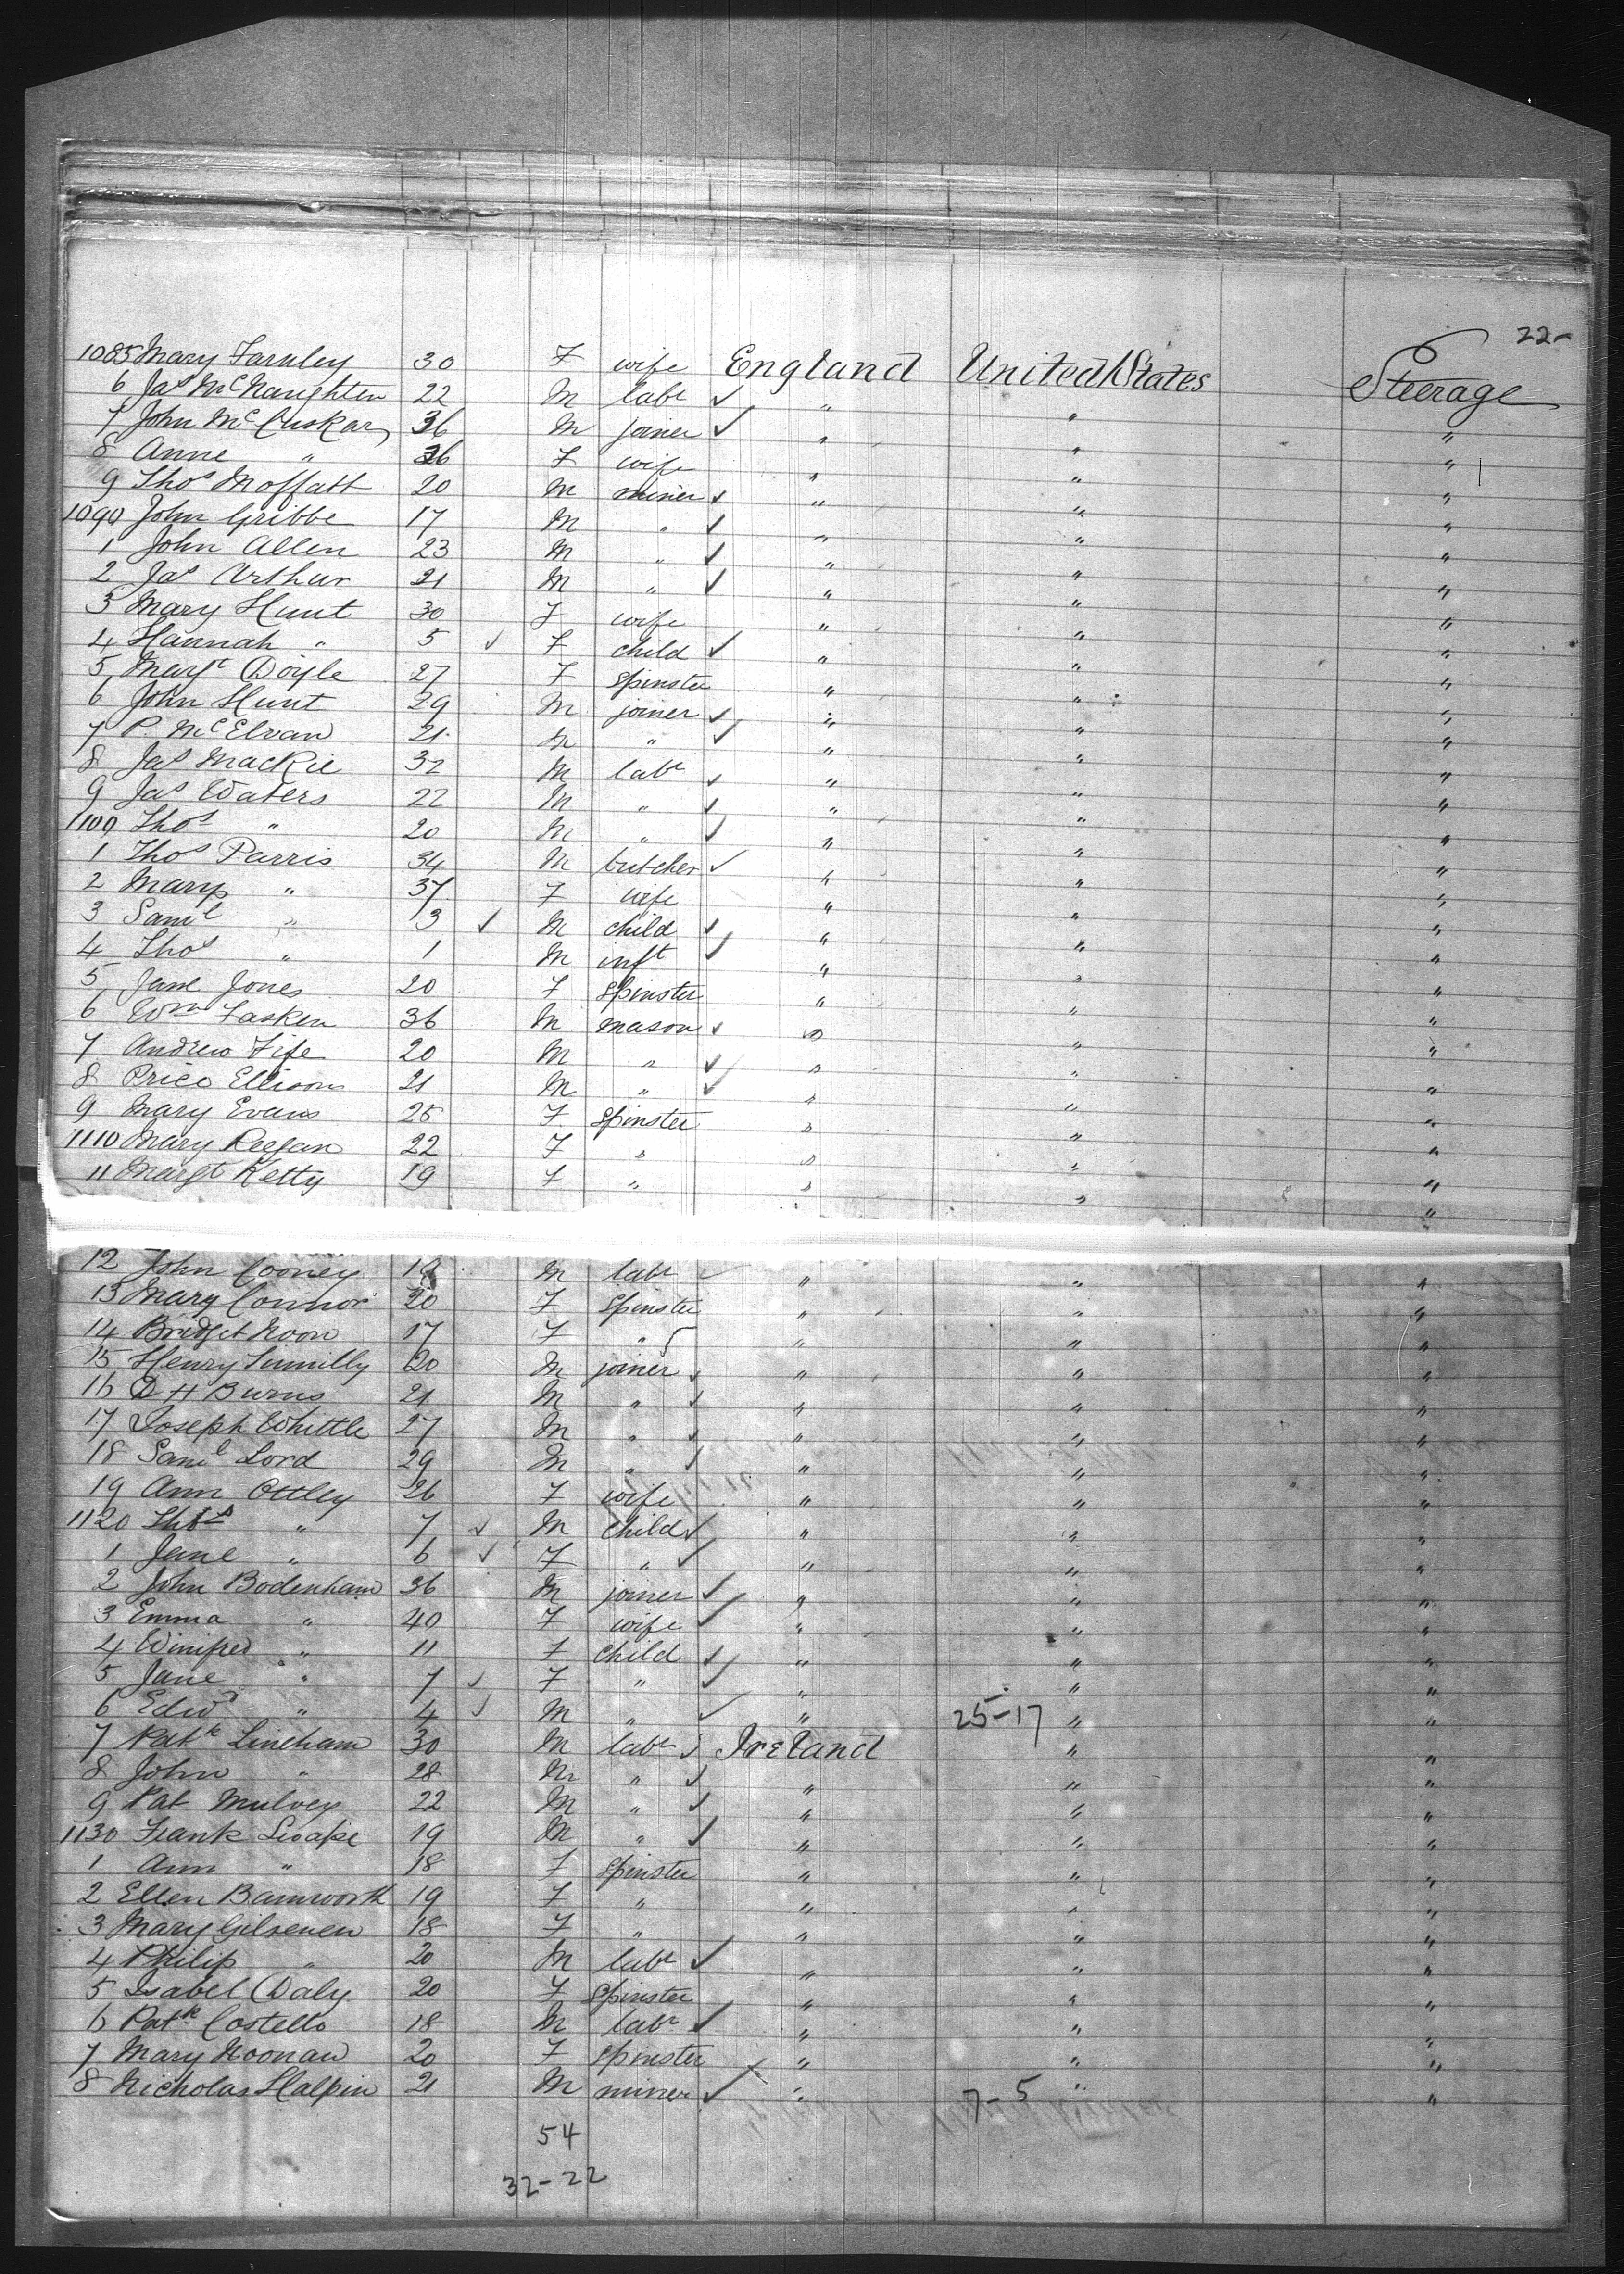 22-
1085 Mary Farnley 30 F wife England United States Steerage
6 Jas McNaughten 22 M labr ✓ " " "
7 John McCuskar 36 M joiner ✓ " " "
8 Anne " 36 F wife " " "
9 Thos Moffatt 20 M miner ✓ " " "
1090 John Gribbe 17 M " ✓ " " "
1 John Allen 23 M " ✓ " " "
2 Jas Arthur 21 M " ✓ " " "
3 Mary Hunt 30 F wife " " "
4 Hannah " 5 ✓ F child ✓ " " "
5 Margt Doyle 27 F spinster " " "
6 John Hunt 29 M joiner ✓ " " "
7 P. McElvan 21 M " ✓ " " "
8 Jas Mackie 32 M labr ✓ " " "
9 Jas Waters 22 M " ✓ " " "
1100 Thos " 20 M " ✓ " " "
1 Thos Parris 34 M butcher ✓ " " "
2 Mary " 37 F wife " " "
3 Saml " 3 ✓ M child ✓ " " "
4 Thos " 1 M inft ✓ " " "
5 Jane Jones 20 F Spinster " " "
6 Wm Fasken 36 M mason ✓ " " "
7 Andrew Fife 20 M " ✓ " " "
8 Price Ellison 21 M " ✓ " " "
9 Mary Evans 25 F Spinster " " "
1110 Mary Reegan 22 F " " " "
11 Margt Ketty 19 F " " " "
12 John Cooney 19 M labr ✓ " " "
13 Mary Connor 20 F Spinster " " "
14 Bridget Noon 17 F " " " "
15 Henry 20 M joiner ✓ " " "
16 D H Burns 21 M " ✓ " " "
17 Joseph Whittle 27 M " ✓ " " "
18 Saml Lord 29 M " ✓ " " "
19 Ann Ottley 26 F wife " " "
1120 Thos " 7 ✓ M child ✓ " " "
1 Jane " 6 ✓ F " ✓ " " "
2 John Bodenham 36 M joiner ✓ " " "
3 Emma " 40 F wife ✓ " " "
4 Winifred " 11 F child ✓ " " "
5 Jane " 7 ✓ F " ✓ " " "
6 Edwd " 4 ✓ M " ✓ " 25-17 " "
7 Patk Lineham 30 M labr ✓ Ireland " "
8 John " 28 M " ✓ " " "
9 Pat Mulvey 22 M " ✓ " " "
1130 Frank 19 M " ✓ " " "
1 Ann " 18 F Spinster " " "
2 Ellen Bamworth 19 F " " " "
3 Mary Gilsenen 18 F " " " "
4 Philip " 20 M labr ✓ " " "
5 Isabel Daly 20 F Spinster " " "
6 Patk Costello 18 M labr ✓ " " "
7 Mary Noonan 20 F Spinster " " "
8 Nicholas Halpin 21 M miner ✓ " 7-5 " "
54
32-22